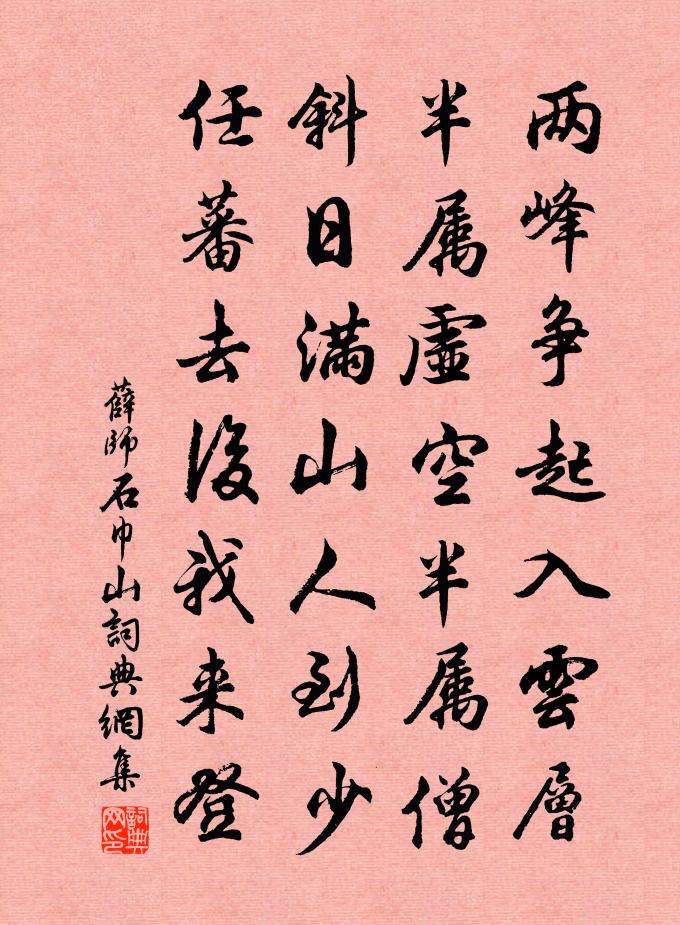 两峰争起入雲層
半属虛空半属僧
斜日満山人到少
任蕃去後我来登
薛師石巾山詞典網集
詞典网印